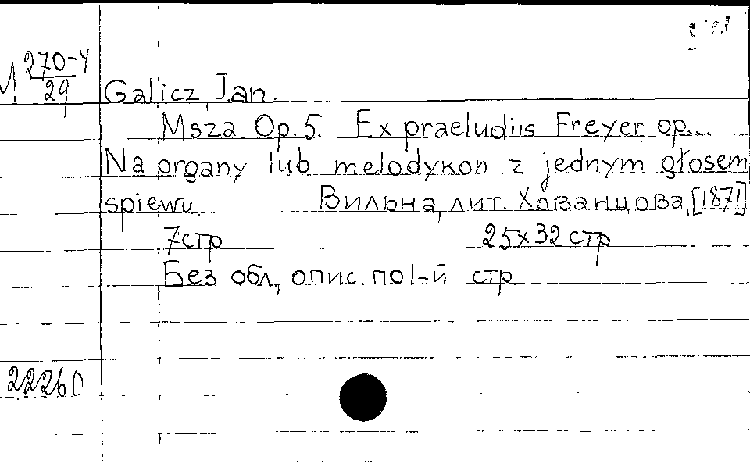 M 270-4
29
Galicz, Jan.
Msza Op. 5. Ex praeludiis Freyer op...
Na organy lub melodykon z jednym głosem
spiewu. Вильна, лит. Хованцова, [1871]
7 стр 25x32 стр
Без обл., опис. по 1-й стр
22260